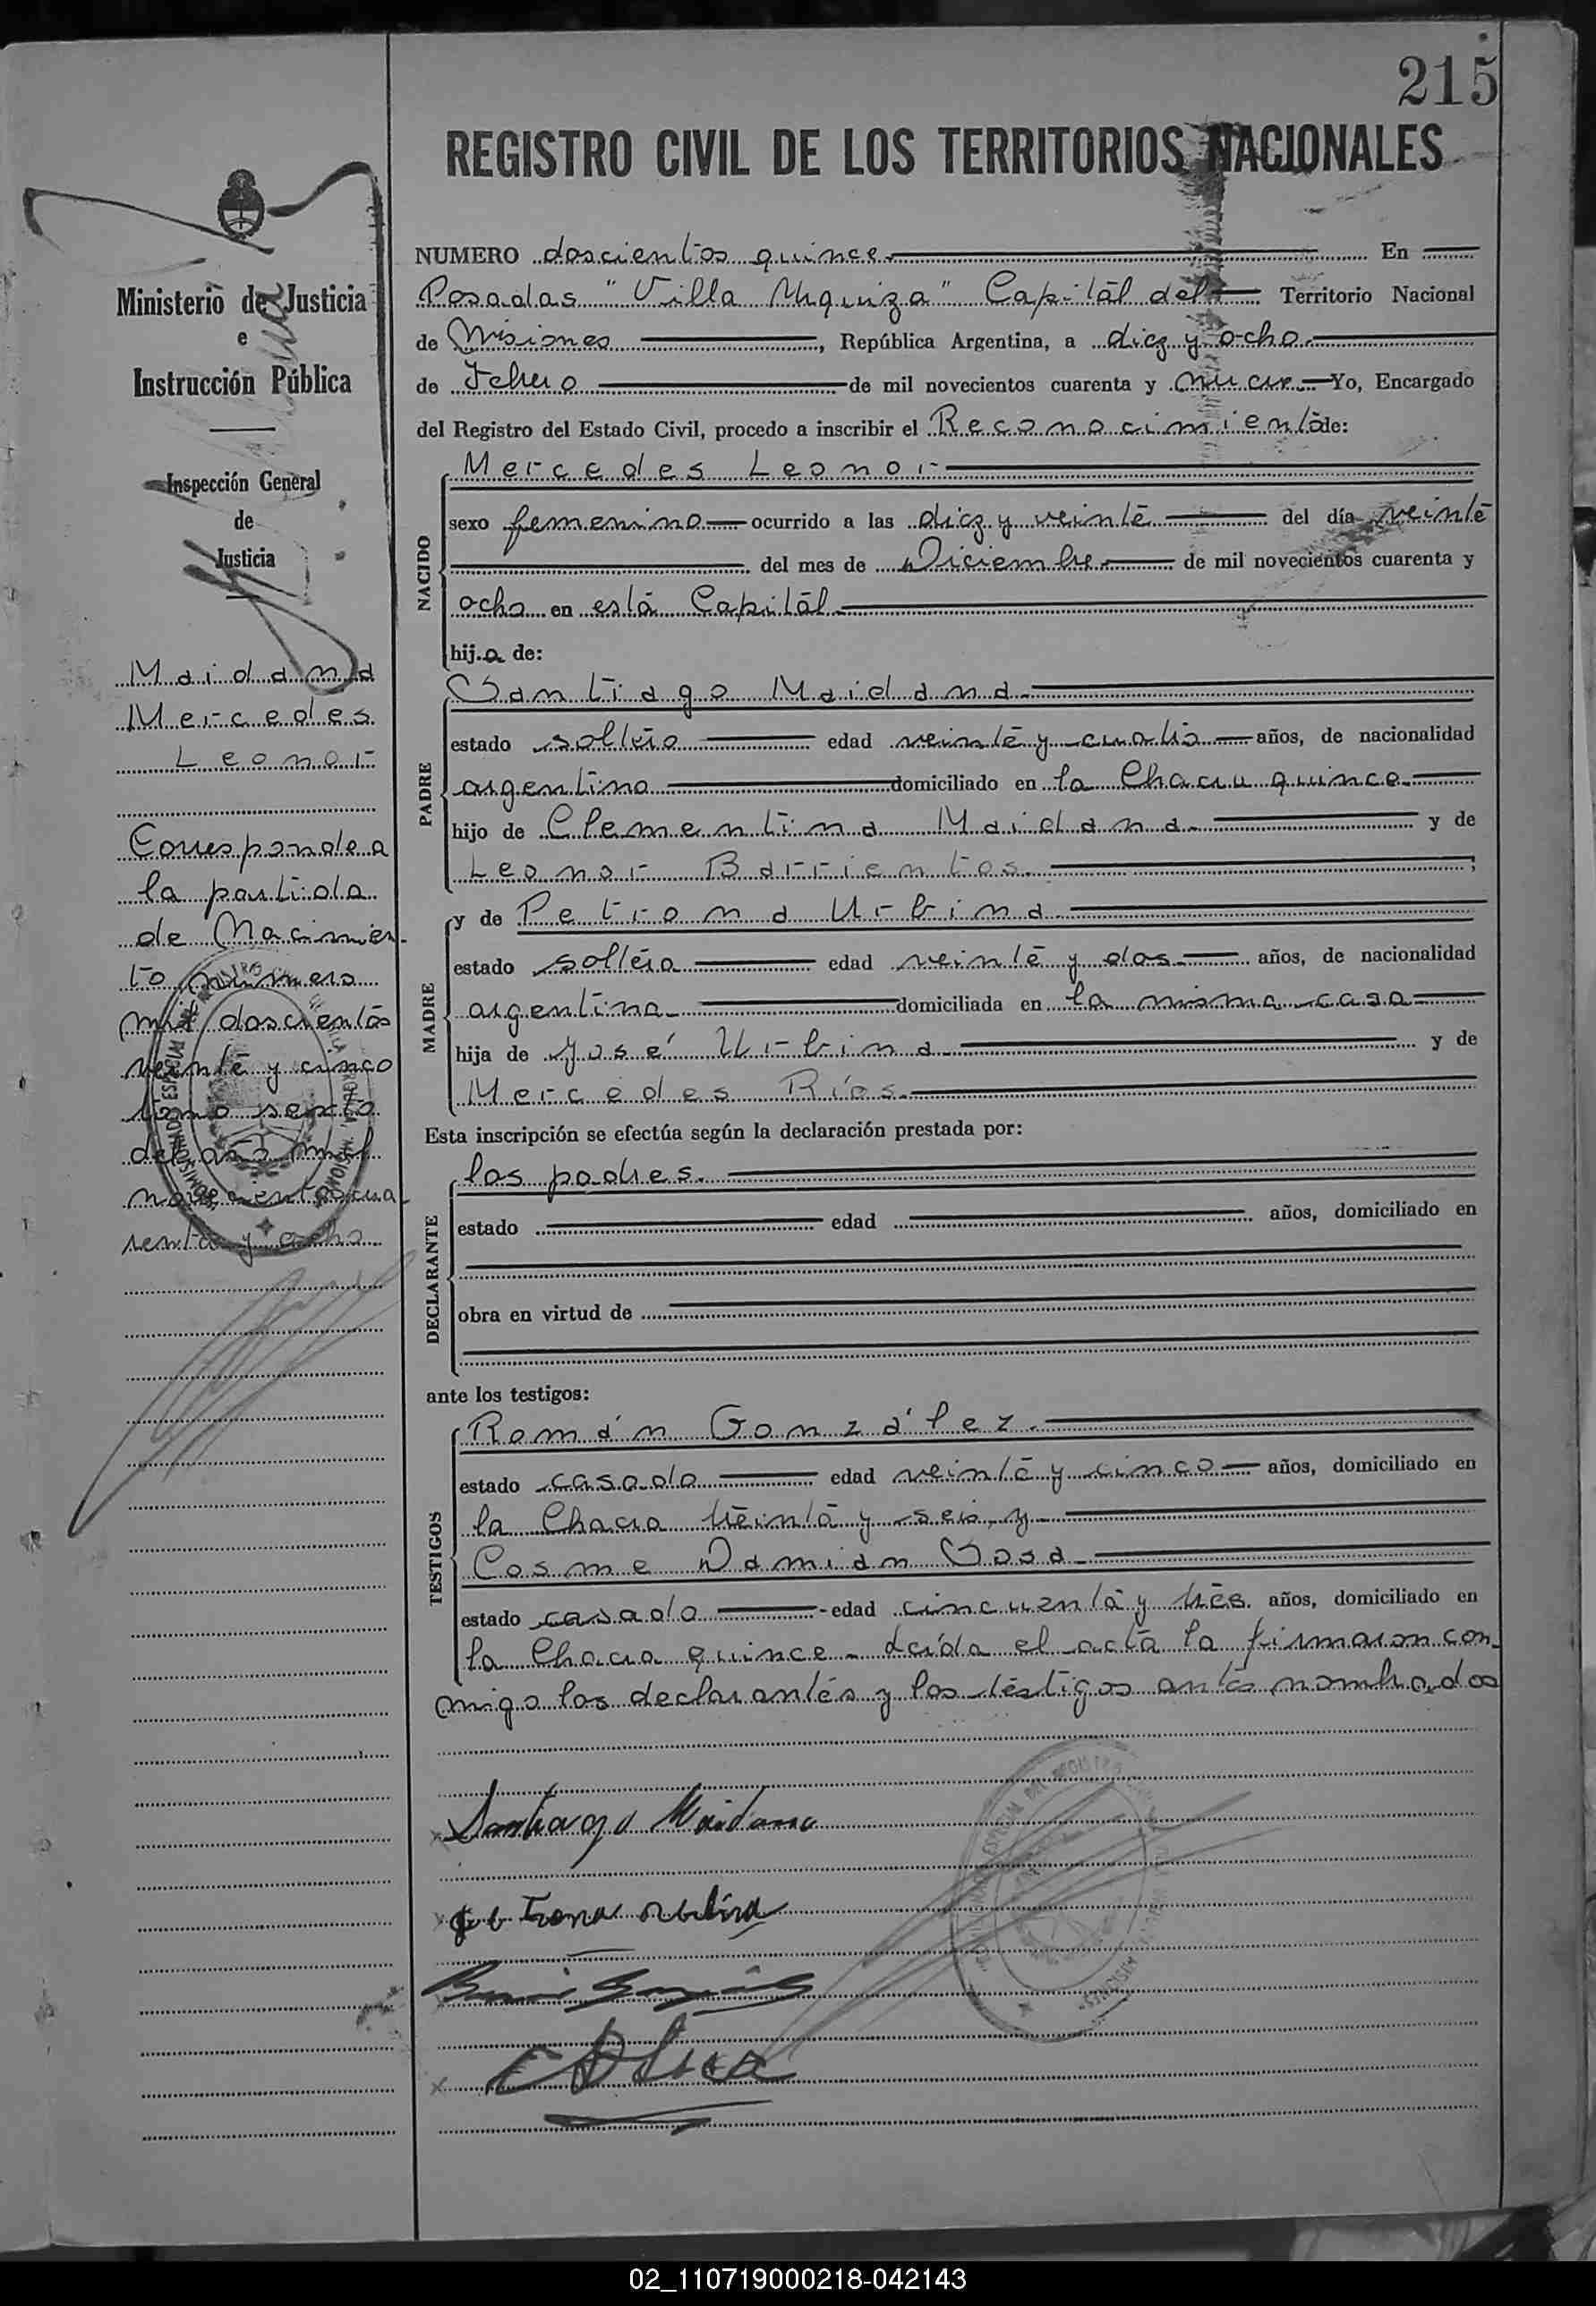 215
REGISTRO CIVIL DE LOS TERRITORIOS NACIONALES
Ministerio de Justicia
e
Instrucción Pública
Inspección General
de
Justicia
Maidana
Mercedes
Leonor
Corresponde a
la partida
de Nacimien-
to número
mil doscientos
veinte y cinco
tomo sexto
del año mil
novecientos cua-
renta y ocho
NUMERO doscientos quince. En
Posadas "Villa Urquiza" Capital del Territorio Nacional
de Misiones, República Argentina, a diez y ocho.
de Febrero de mil novecientos cuarenta y nueve Yo, Encargado
del Registro del Estado Civil, procedo a inscribir el Reconocimiento de:
NACIDO
Mercedes Leonor
sexo femenino ocurrido a las diez y veinte del día veinte
del mes de Diciembre de mil novecientos cuarenta y
ocho en esta Capital.
hija de:
PADRE
Santiago Maidana.
estado soltero edad veinte y cuatro años, de nacionalidad
argentino domiciliado en la Chacra quince.
hijo de Clementina Maidana. y de
Leonor Barrientos. ;
MADRE
y de Petrona Urbina.
estado soltera edad veinte y dos. años, de nacionalidad
argentina. domiciliada en la misma casa
hija de José Urbina. y de
Mercedes Ríos.
Esta inscripción se efectúa según la declaración prestada por:
DECLARANTE
los padres.
estado edad años, domiciliado en
obra en virtud de
ante los testigos:
TESTIGOS
Román González.
estado casado edad veinte y cinco años, domiciliado en
la Chacra treinta y seis, y
Cosme Damian Sosa.
estado casado edad cincuenta y tres años, domiciliado en
la Chacra quince. Leída el acta la firmaron con-
migo los declarantes y los testigos antes nombrados
Santiago Maidana
02_110719000218-042143